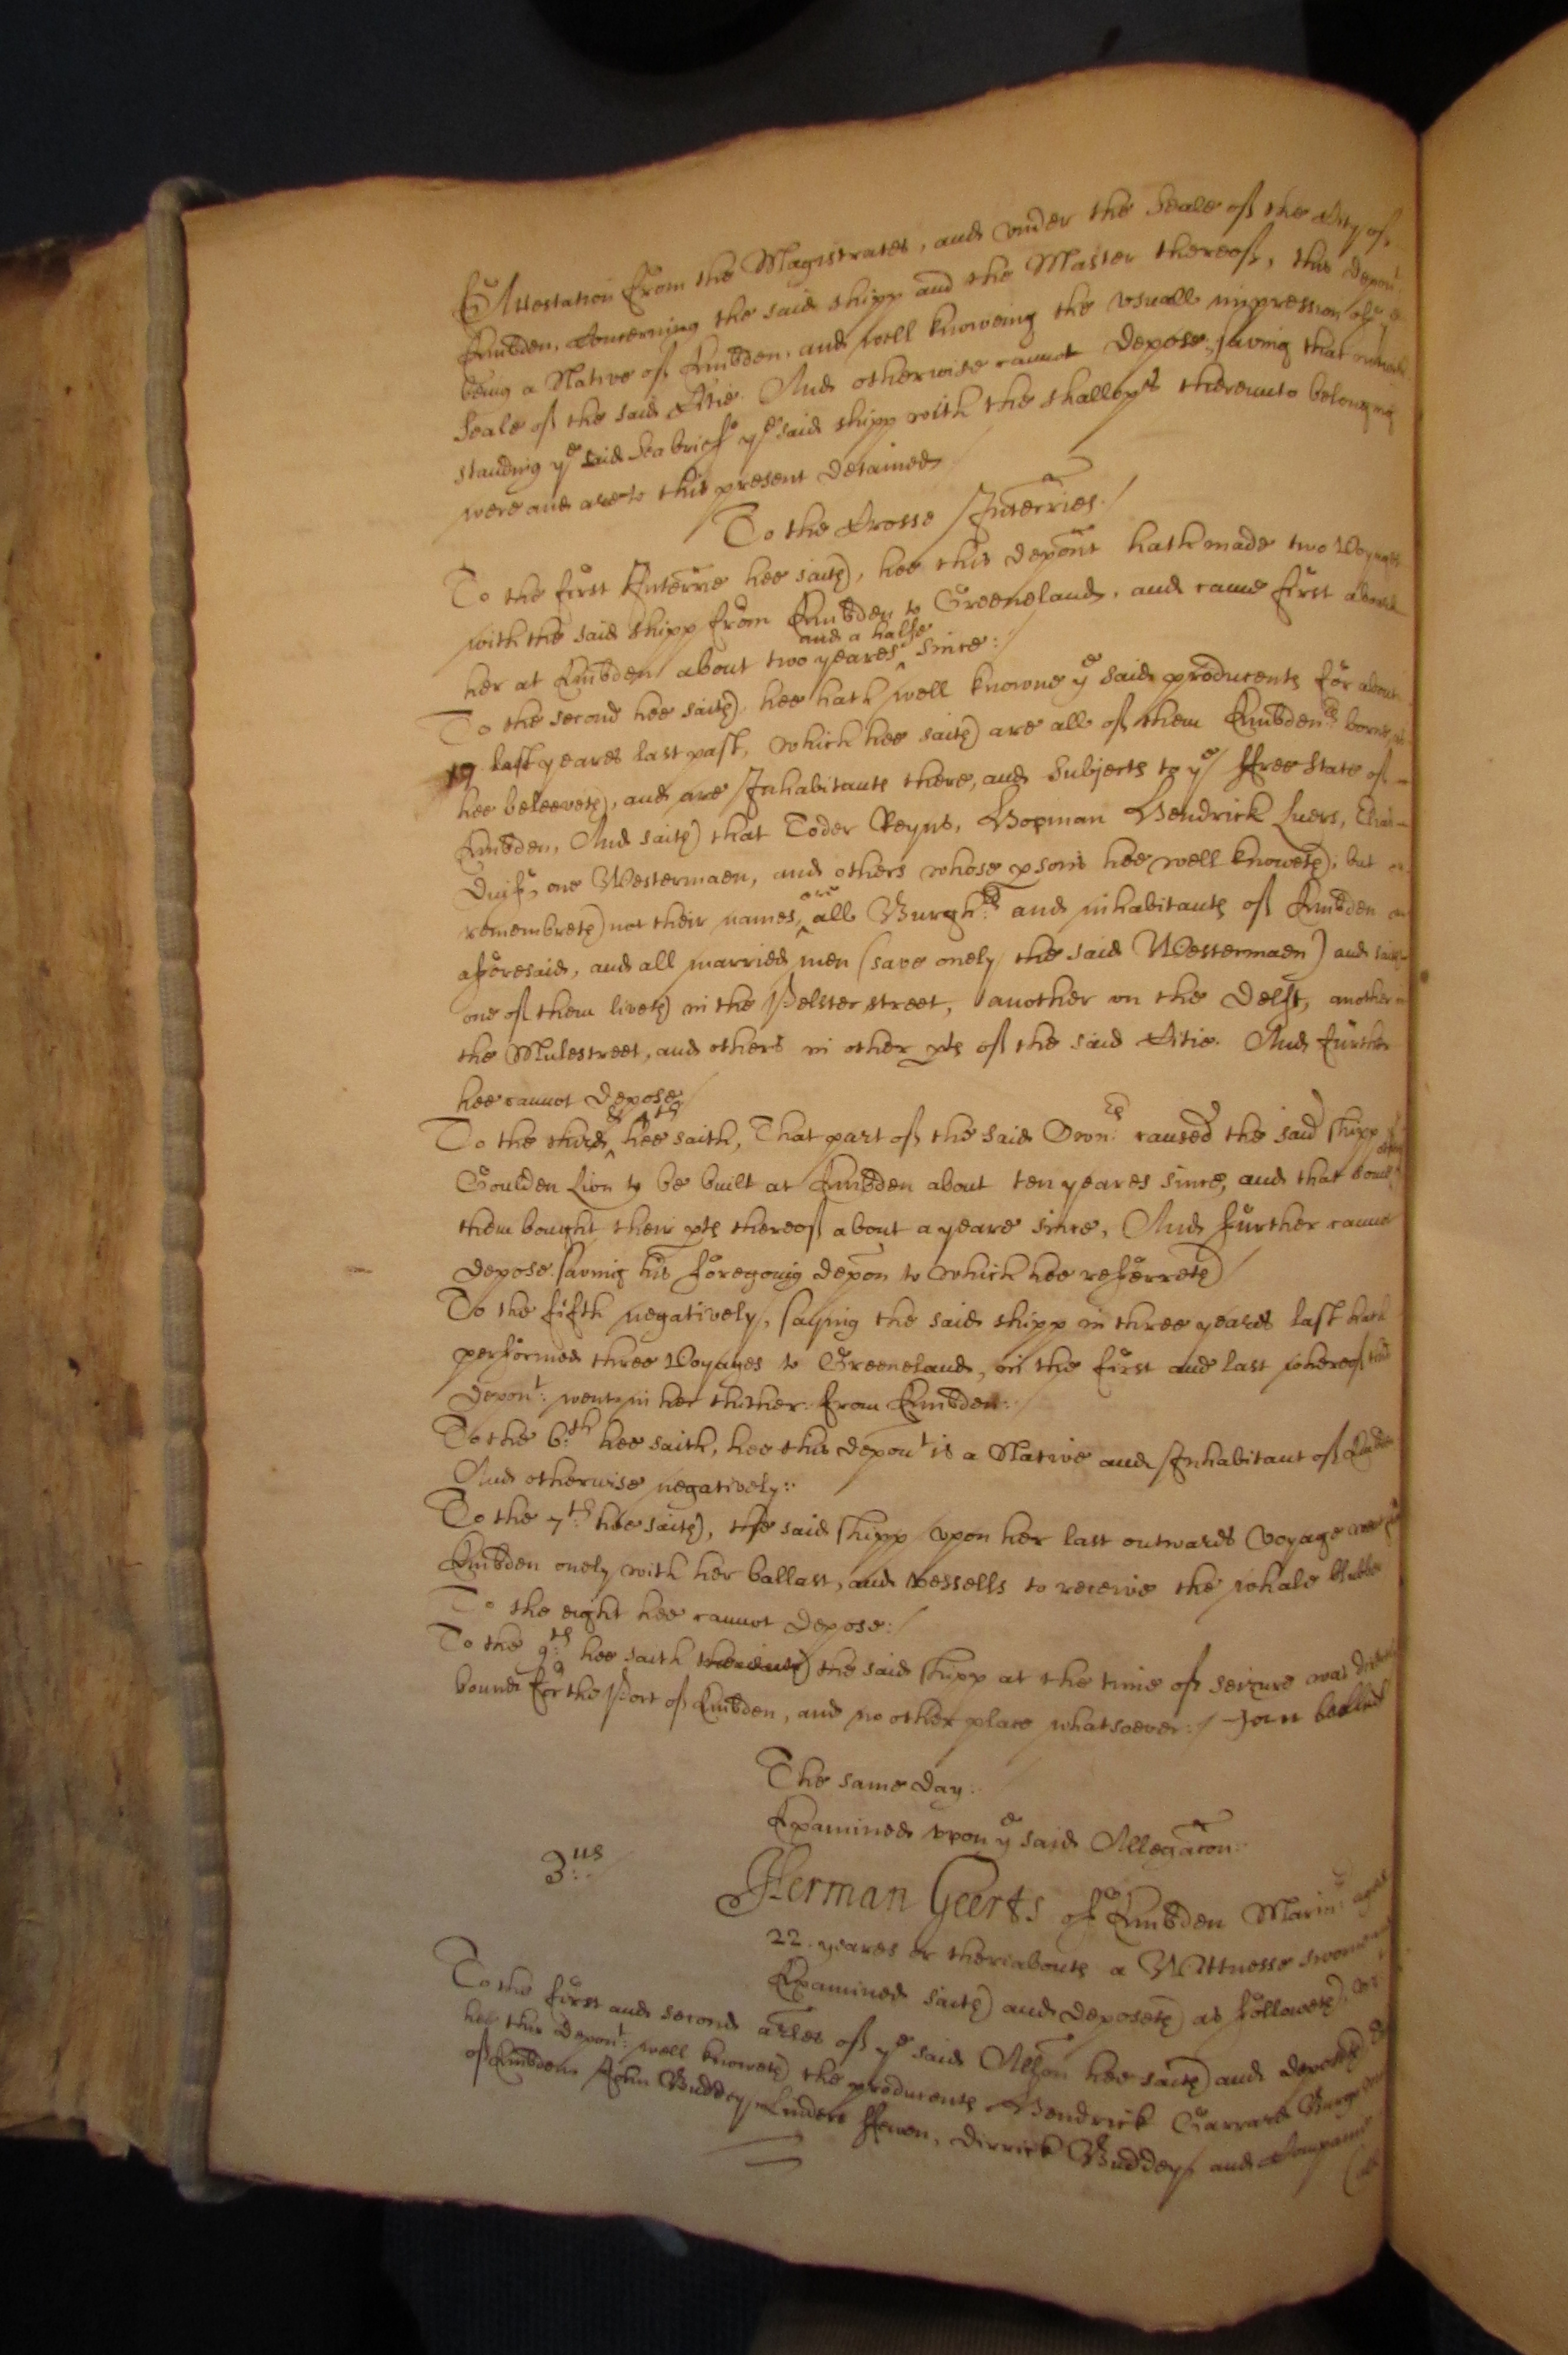 Attestation from the Magistrates, and under the Seale of the City of
Embden, Concerning the said shipp and the Master thereof, this depont
being a Native of Embden, and well knoweing the usuall impression of ye
Seale of the said Citie. And otherwise cannot depose, saving that notwith
standing ye said Sea briefe ye said shipp with the shallopps thereunto belonging
were and are to this present detained
To the Crosse Interries
To the first Interrie hee saith, hee this depont hath made two Voyages
with the said shipp from Embden to Greeneland, and came first aboard
and a halfe
her at Embden about two yeares since:
To the second hee saith, hee hath well knowne ye said producents for about
19 last yeares last past, which hee saith are all of them Embdenrs borne, as
hee beleeveth, and are Inhabitants there, and Subjects to ye ffree State of
Embden, And saith that Toder Reyns, Hopman Hendrick Luers,
one Westermaen, and others whose psons hee well knoweth, but
remembreth not their names, are all Burghrs and inhabitants of Embden
aforesaid, and all married men (save onely the said Westermaen) and saith
one of them liveth in the Pelster street, another on the Delft, another in
the Mulestreet, and others in other pts of the said Citie. And further
hee cannot depose
To the third & 4th hee saith, That part of the said Ownrs caused the said shipp ye
Goulden Lion to be built at Embden about ten yeares since, and that some of
them bought their pts thereof about a yeare since, And further cannot
depose saving his foregoing depon to which hee referreth
To the fifth negatively, saying the said shipp in three yeares last hath
performed three Voyages to Greeneland, in the first and last whereof this
depont: went in her thither from Embden:
To the 6th hee saith, hee this depont is a Native and Inhabitant of Embden
And otherwise negatively:
To the 7th hee saith, the said shipp upon her last outwards Voyage went from
Embden onely with her ballast, and vessells to receive the whale blubber
To the eight hee cannot depose:
To the 9th hee saith the said shipp at the time of seizure was
bound for the Port of Embden, and no other place whatsoever:/ Jan
The same day.
Examined upon ye said Allegacon.
3us
Herman Geerts of Embden Marinr aged
22 yeares or thereabouts a Wittnesse sworne and
Examined saith and deposeth as followeth, vizt
To the first and second arles of ye said Allon hee saith and deposeth
hee this depont: well knoweth the producents Hendrick Garrard
of Embden John Buddey, Luders, Dirrick Buddey, and Companie